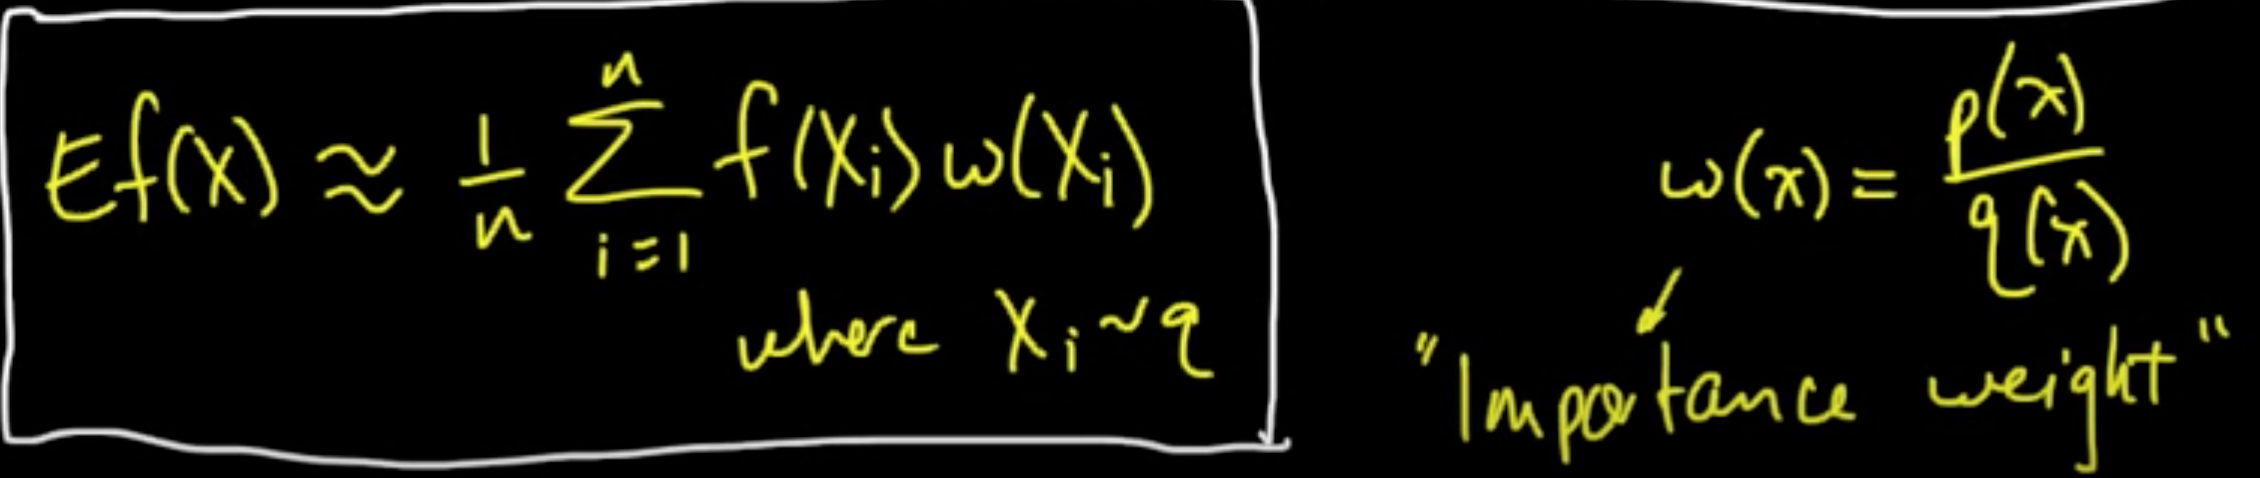 Ef(X) ≈ 1/n ∑_{i=1}^{n} f(X_i) w(X_i)
where X_i ~ q
w(x) = p(x)/q(x)
"Importance weight"